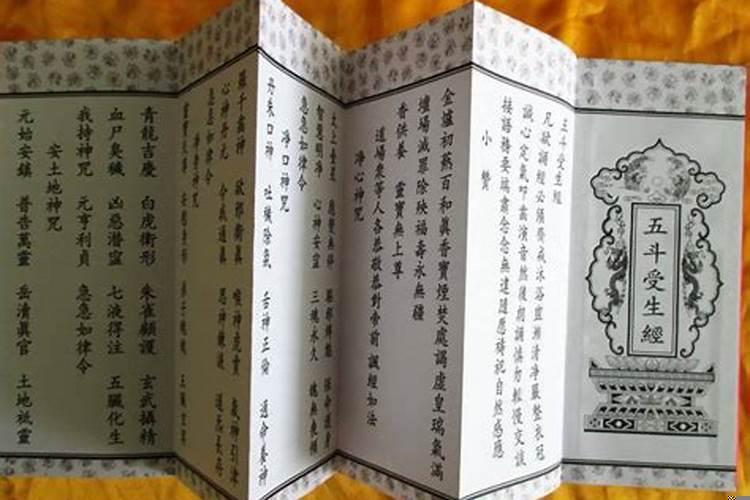 五斗受生經
五斗受生經
凡欲誦經必須齋戒沐浴盥漱清淨嚴整衣冠
誠心定氣叩齒演音然後朗誦慎勿輕慢交談
接語務要端肅念念無違隨愿禱祀自然感應
小贊
金爐初爇百和真香寶煙焚處謁虛皇瑞氣滿
壇場滅罪除殃福壽永無疆
香供養 靈寶無上尊
道場眾等人各恭敬恭對帝前 誦經如法
淨心神咒
太上台星 應變無停
智慧明淨 心神安寧 三魂永久
急急如律令
淨口神咒
丹朱口神 吐穢除氛 舌神正倫 通命養神
羅千齒神 卻邪衛真 喉神虎賁 氣神引津
心神丹元 令我通真 思神鍊液 道炁長存
急急如律令
淨身神咒
青龍吉慶 白虎衛形 朱雀顧護 玄武攝精
血尸臭穢 凶惡潛寧 七液得注 五臟化生
我持神咒 元亨利貞 急急如律令
安土地神咒
元始安鎮 普告萬靈 岳瀆真官 土地祗靈